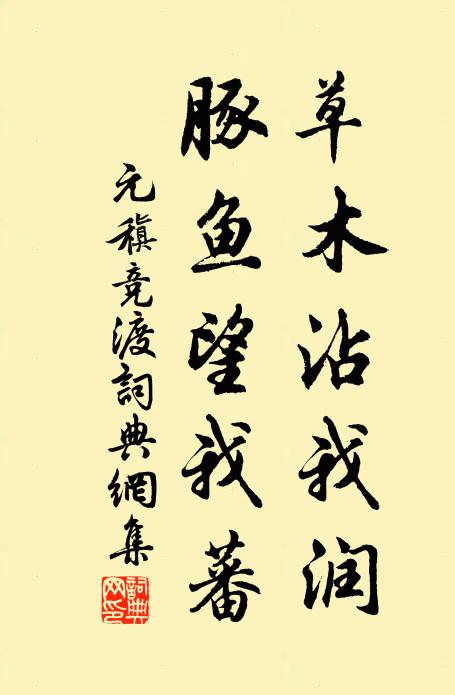 草木沾我润
豚鱼望我蕃
元稹竞渡詞典網集
詞典网印